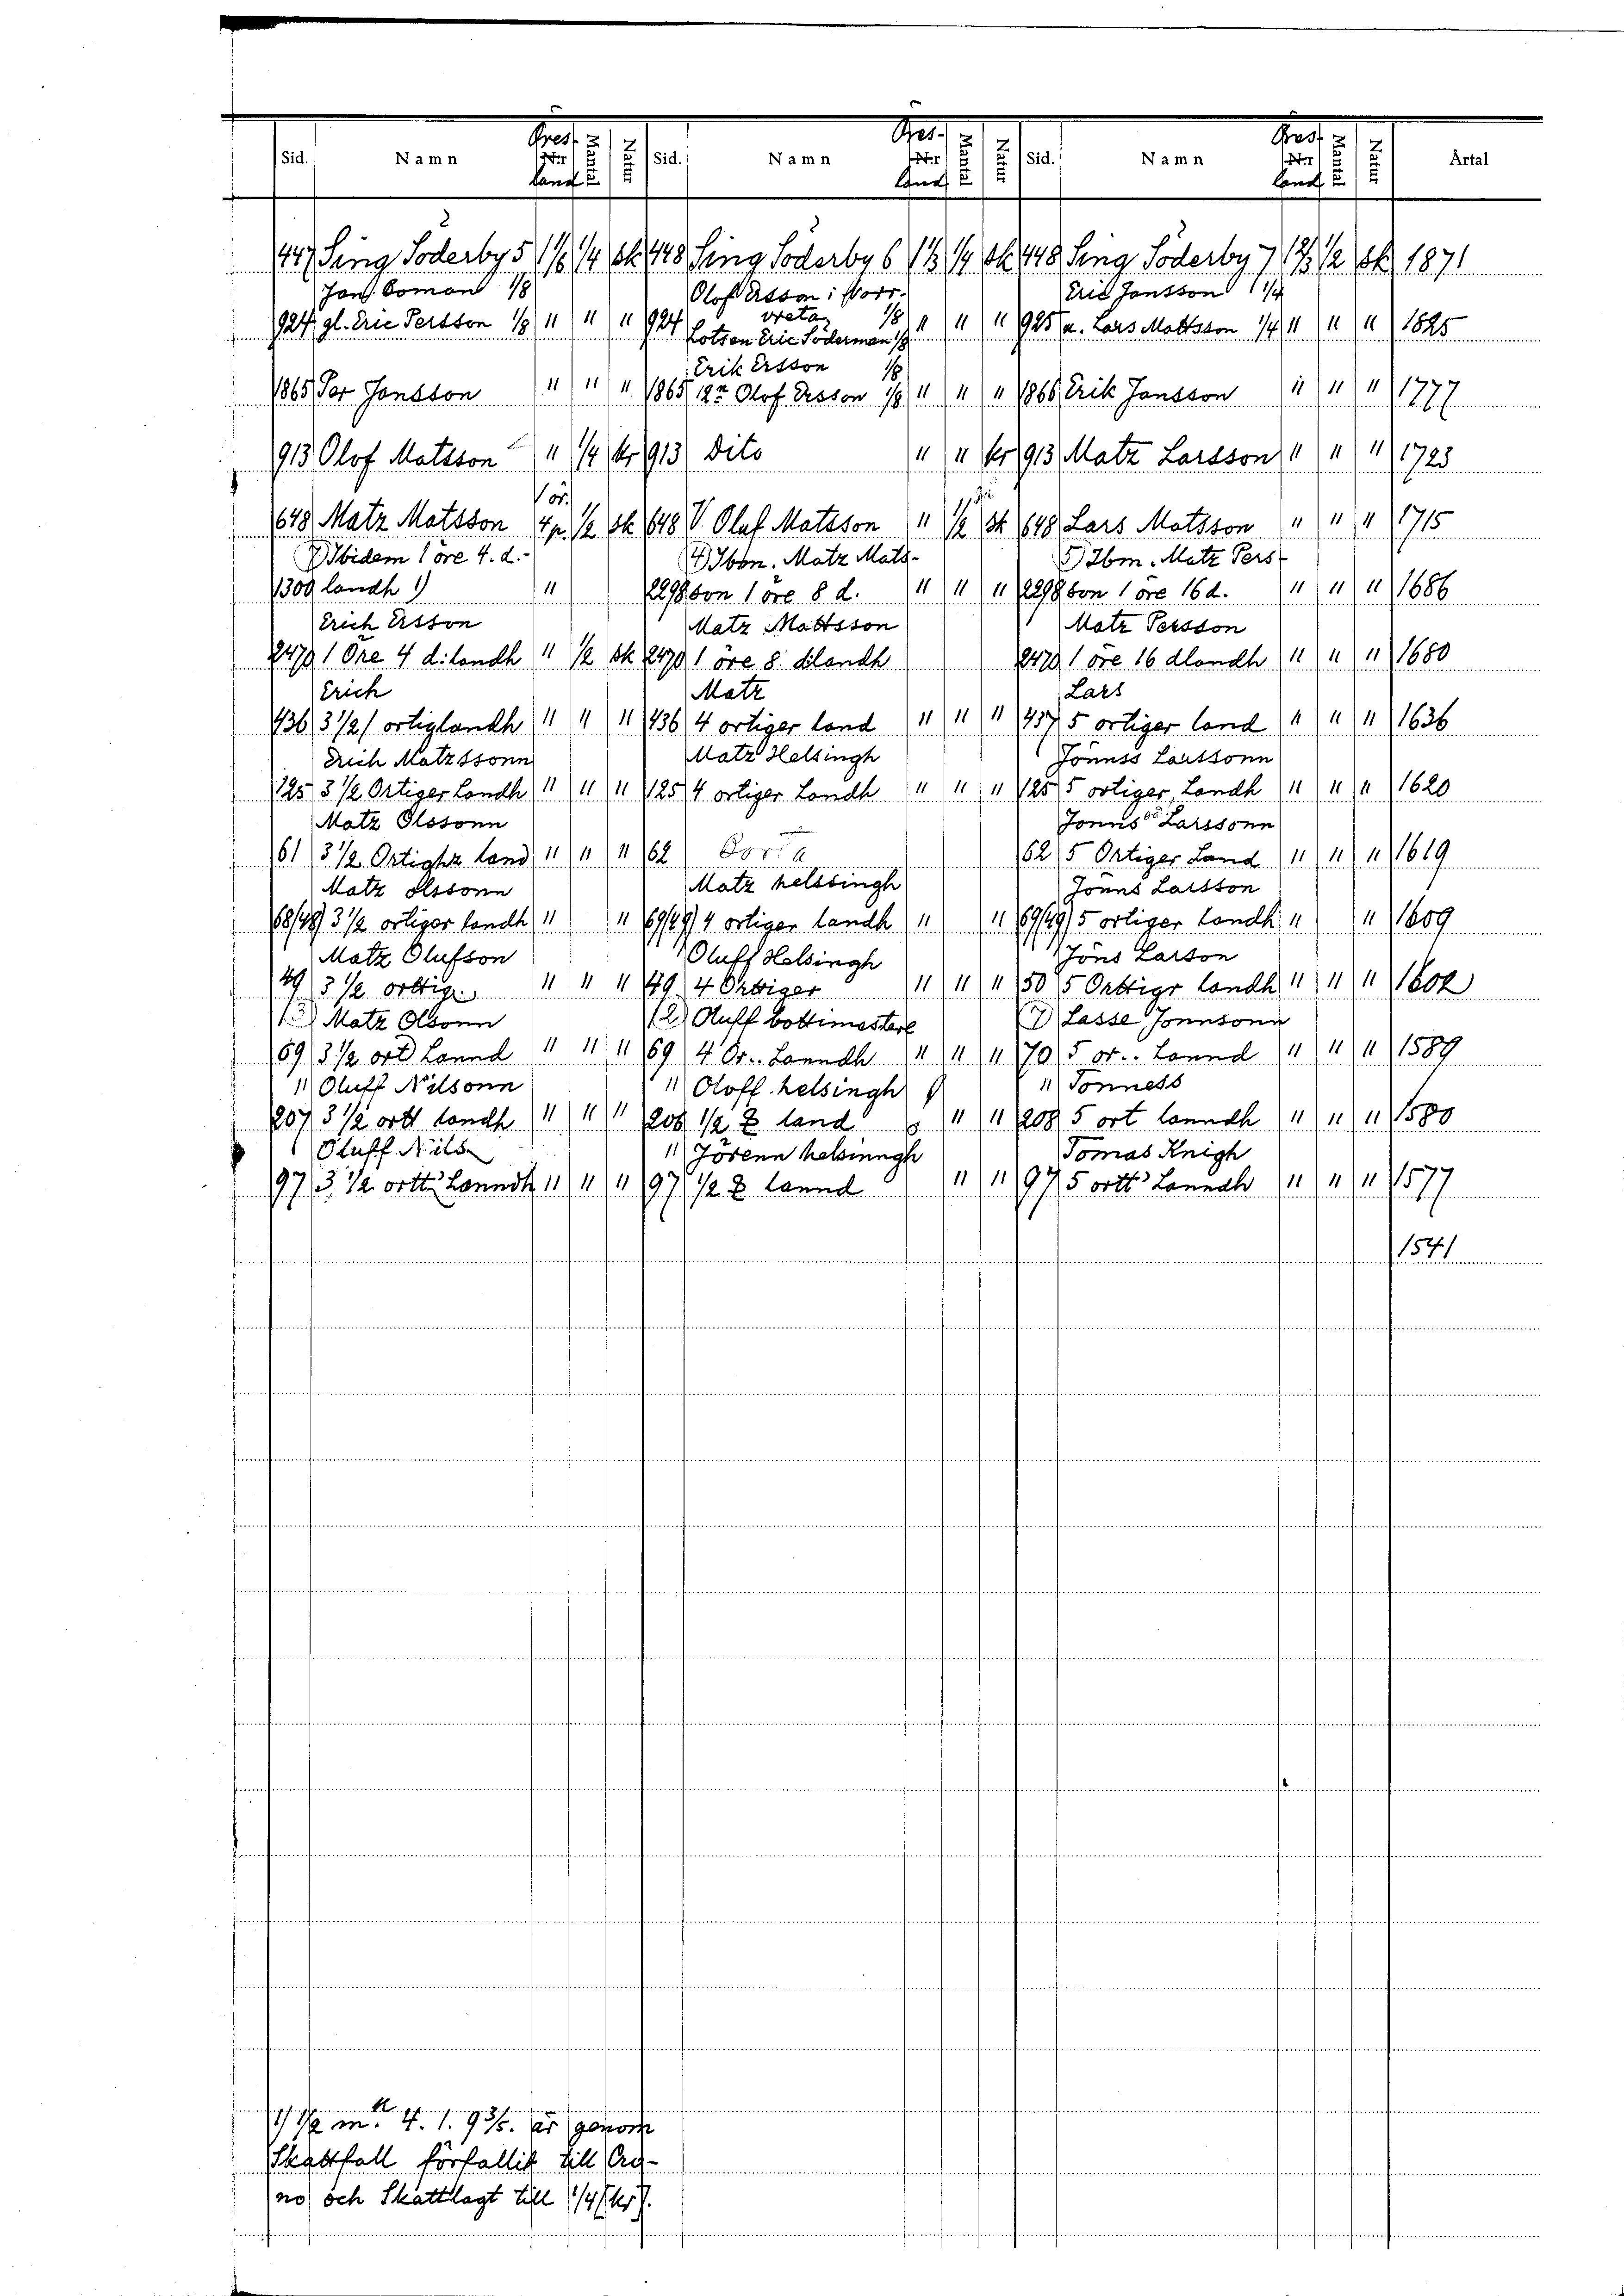 Sid. Namn Öres- eller land Mantal Natur Sid. Namn Öres- eller land Mantal Natur Sid. Namn Öres- eller land Mantal Natur Årtal
447 Sing Söderby 5 1/4 sk 448 Sing Söderby 6 1/4 sk 448 Sing Söderby 7 1/2 sk 1871
Jan Boman 1/8 Olof Ersson i Norr- Eric Jansson 1/4
924 gl. Eric Persson 1/8 " " " 924 vreta 1/8 " " " 925 u. Lars Mattsson 1/4 " " " 1825
Lotsen Eric Söderman 1/8
Erik Ersson 1/8
1865 Per Jansson " " " 1865 Olof Ersson 1/8 " " " 1866 Erik Jansson " " " 1777
913 Olof Matsson " 1/4 kr 913 Dito " " kr 913 Matz Larsson " " " 1723
1 ör.
648 Matz Matsson 4p. 1/2 sk 648 V. Oluf Matsson " 1/2 sk 648 Lars Matsson " " " 1715
7) Ibidem 1 öre 4. d.- 4) Ibm. Matz Mats- 5) Ibm. Matz Pers-
1300 landh 1) " 2298 son 1 öre 8 d. " " " 2298 son 1 öre 16 d. " " " 1686
Erich Ersson Matz Mattsson Matz Persson
2479 1 Öre 4 d: landh " 1/2 sk 2479 1 öre 8 dlandh 2479 1 öre 16 dlandh " " " 1680
Erich Matz Lars
436 3 1/2 ortiglandh " " " 436 4 ortiger land " " " 437 5 ortiger land " " " 1636
Erich Matzssonn Matz Helsingh Jönnss Larssonn
125 3 1/2 Ortiger Landh " " " 125 4 ortiger Landh " " " 125 5 ortiger Landh " " " 1620
Matz Olssonn Jonns Larssonn
61 3 1/2 Ortighr land " " " 62 62 5 Ortiger Land " " " 1619
Matz olssonn Matz helssingh Jönns Larsson
68/48 3 1/2 ortiger landh " " 69/49 4 ortiger landh " " 69/49 5 ortiger landh " " 1609
Matz Olufson Oluff Helsingh Jöns Larson
49 3 1/2 orttig. " " " 49 4 Orttiger " " " 50 5 Orttigr landh " " " 1602
(3) Matz Olsonn (2) Oluff bottimestere (7) Lasse Jonnsonn
69 3 1/2 ort Lannd " " " 69 4 Or.. Lanndh " " " 70 5 or.. Lannd " " " 1589
" Oluff Nilsonn " Oloff helsingh " Tonness
207 3 1/2 ortt landh " " " 206 1/2 land " " 208 5 ort lanndh " " " 1580
Oluff Nils " Jörenn helsinngh Tomas Knigh
97 3 1/2 ortt: Lanndh " " " 97 1/2 lannd " " 97 5 ortt: Lanndh " " " 1577
1541
1) 1/2 m. 4. 1. 9 3/5. är genom
Skattfall förfallit till Cro-
no och Skattlagt till 1/4 (kr).